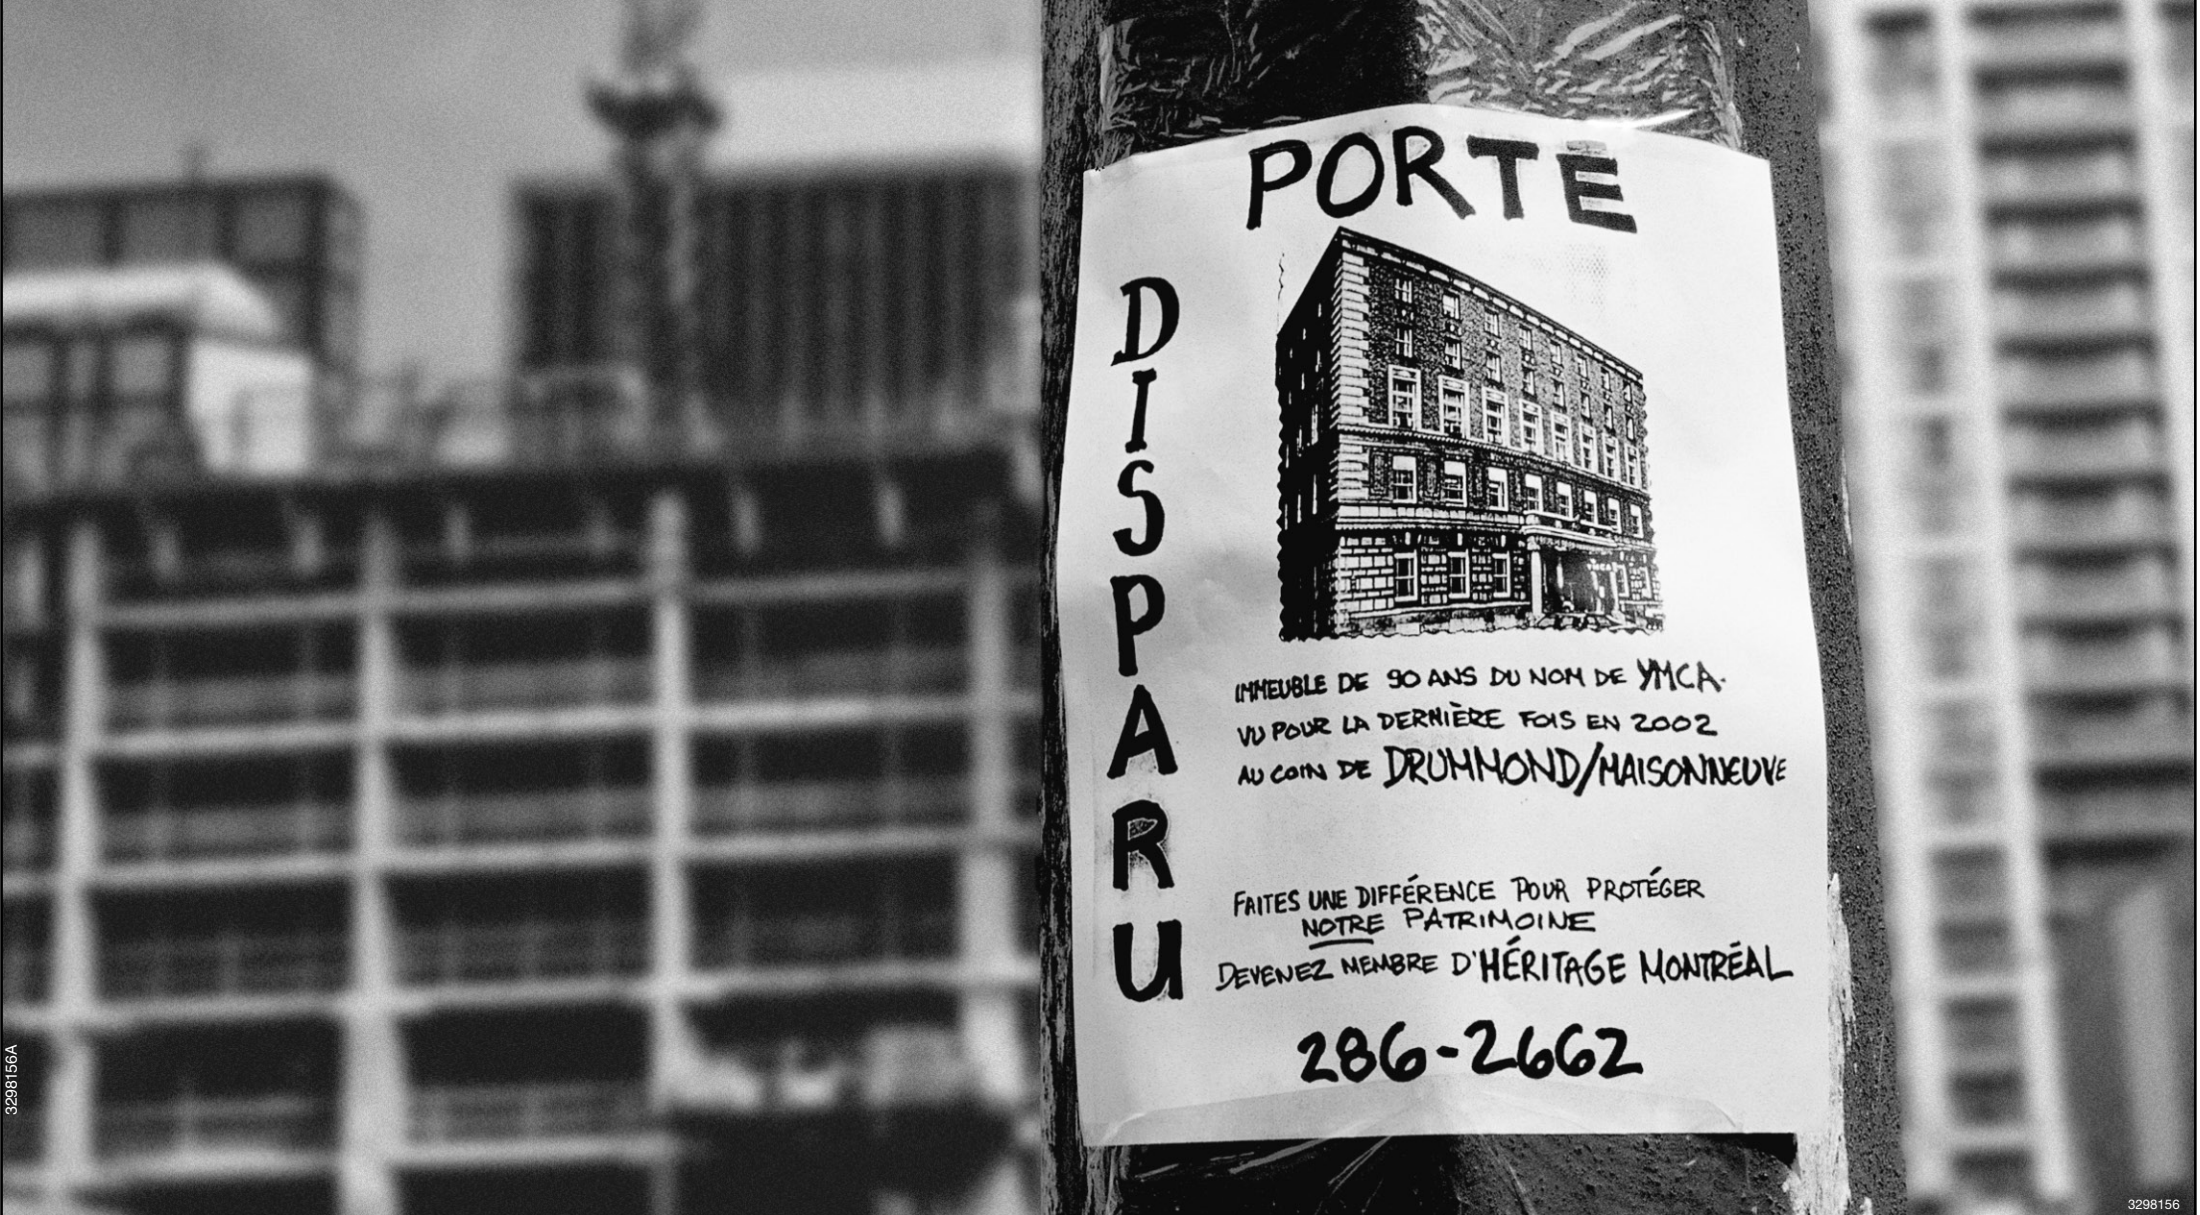 PORTÉ
DISPARU
YMCA
IMMEUBLE DE 90 ANS DU NOM DE YMCA.
VU POUR LA DERNIÈRE FOIS EN 2002
AU COIN DE DRUMMOND/MAISONNEUVE
FAITES UNE DIFFÉRENCE POUR PROTÉGER
NOTRE PATRIMOINE
DEVENEZ MEMBRE D'HÉRITAGE MONTRÉAL
286-2662
3298156A
3298156